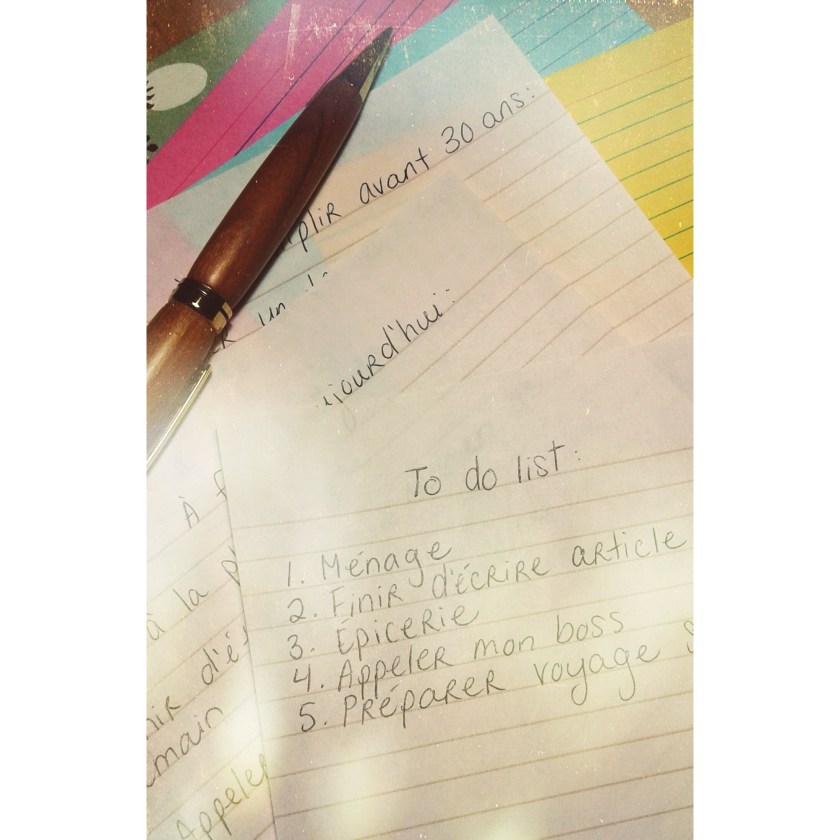 avant 30 ans:
To do list:
1. Ménage
2. Finir d'écrire article
3. Épicerie
4. Appeler mon boss
5. Préparer voyage
À
à la
d'é
Appeler